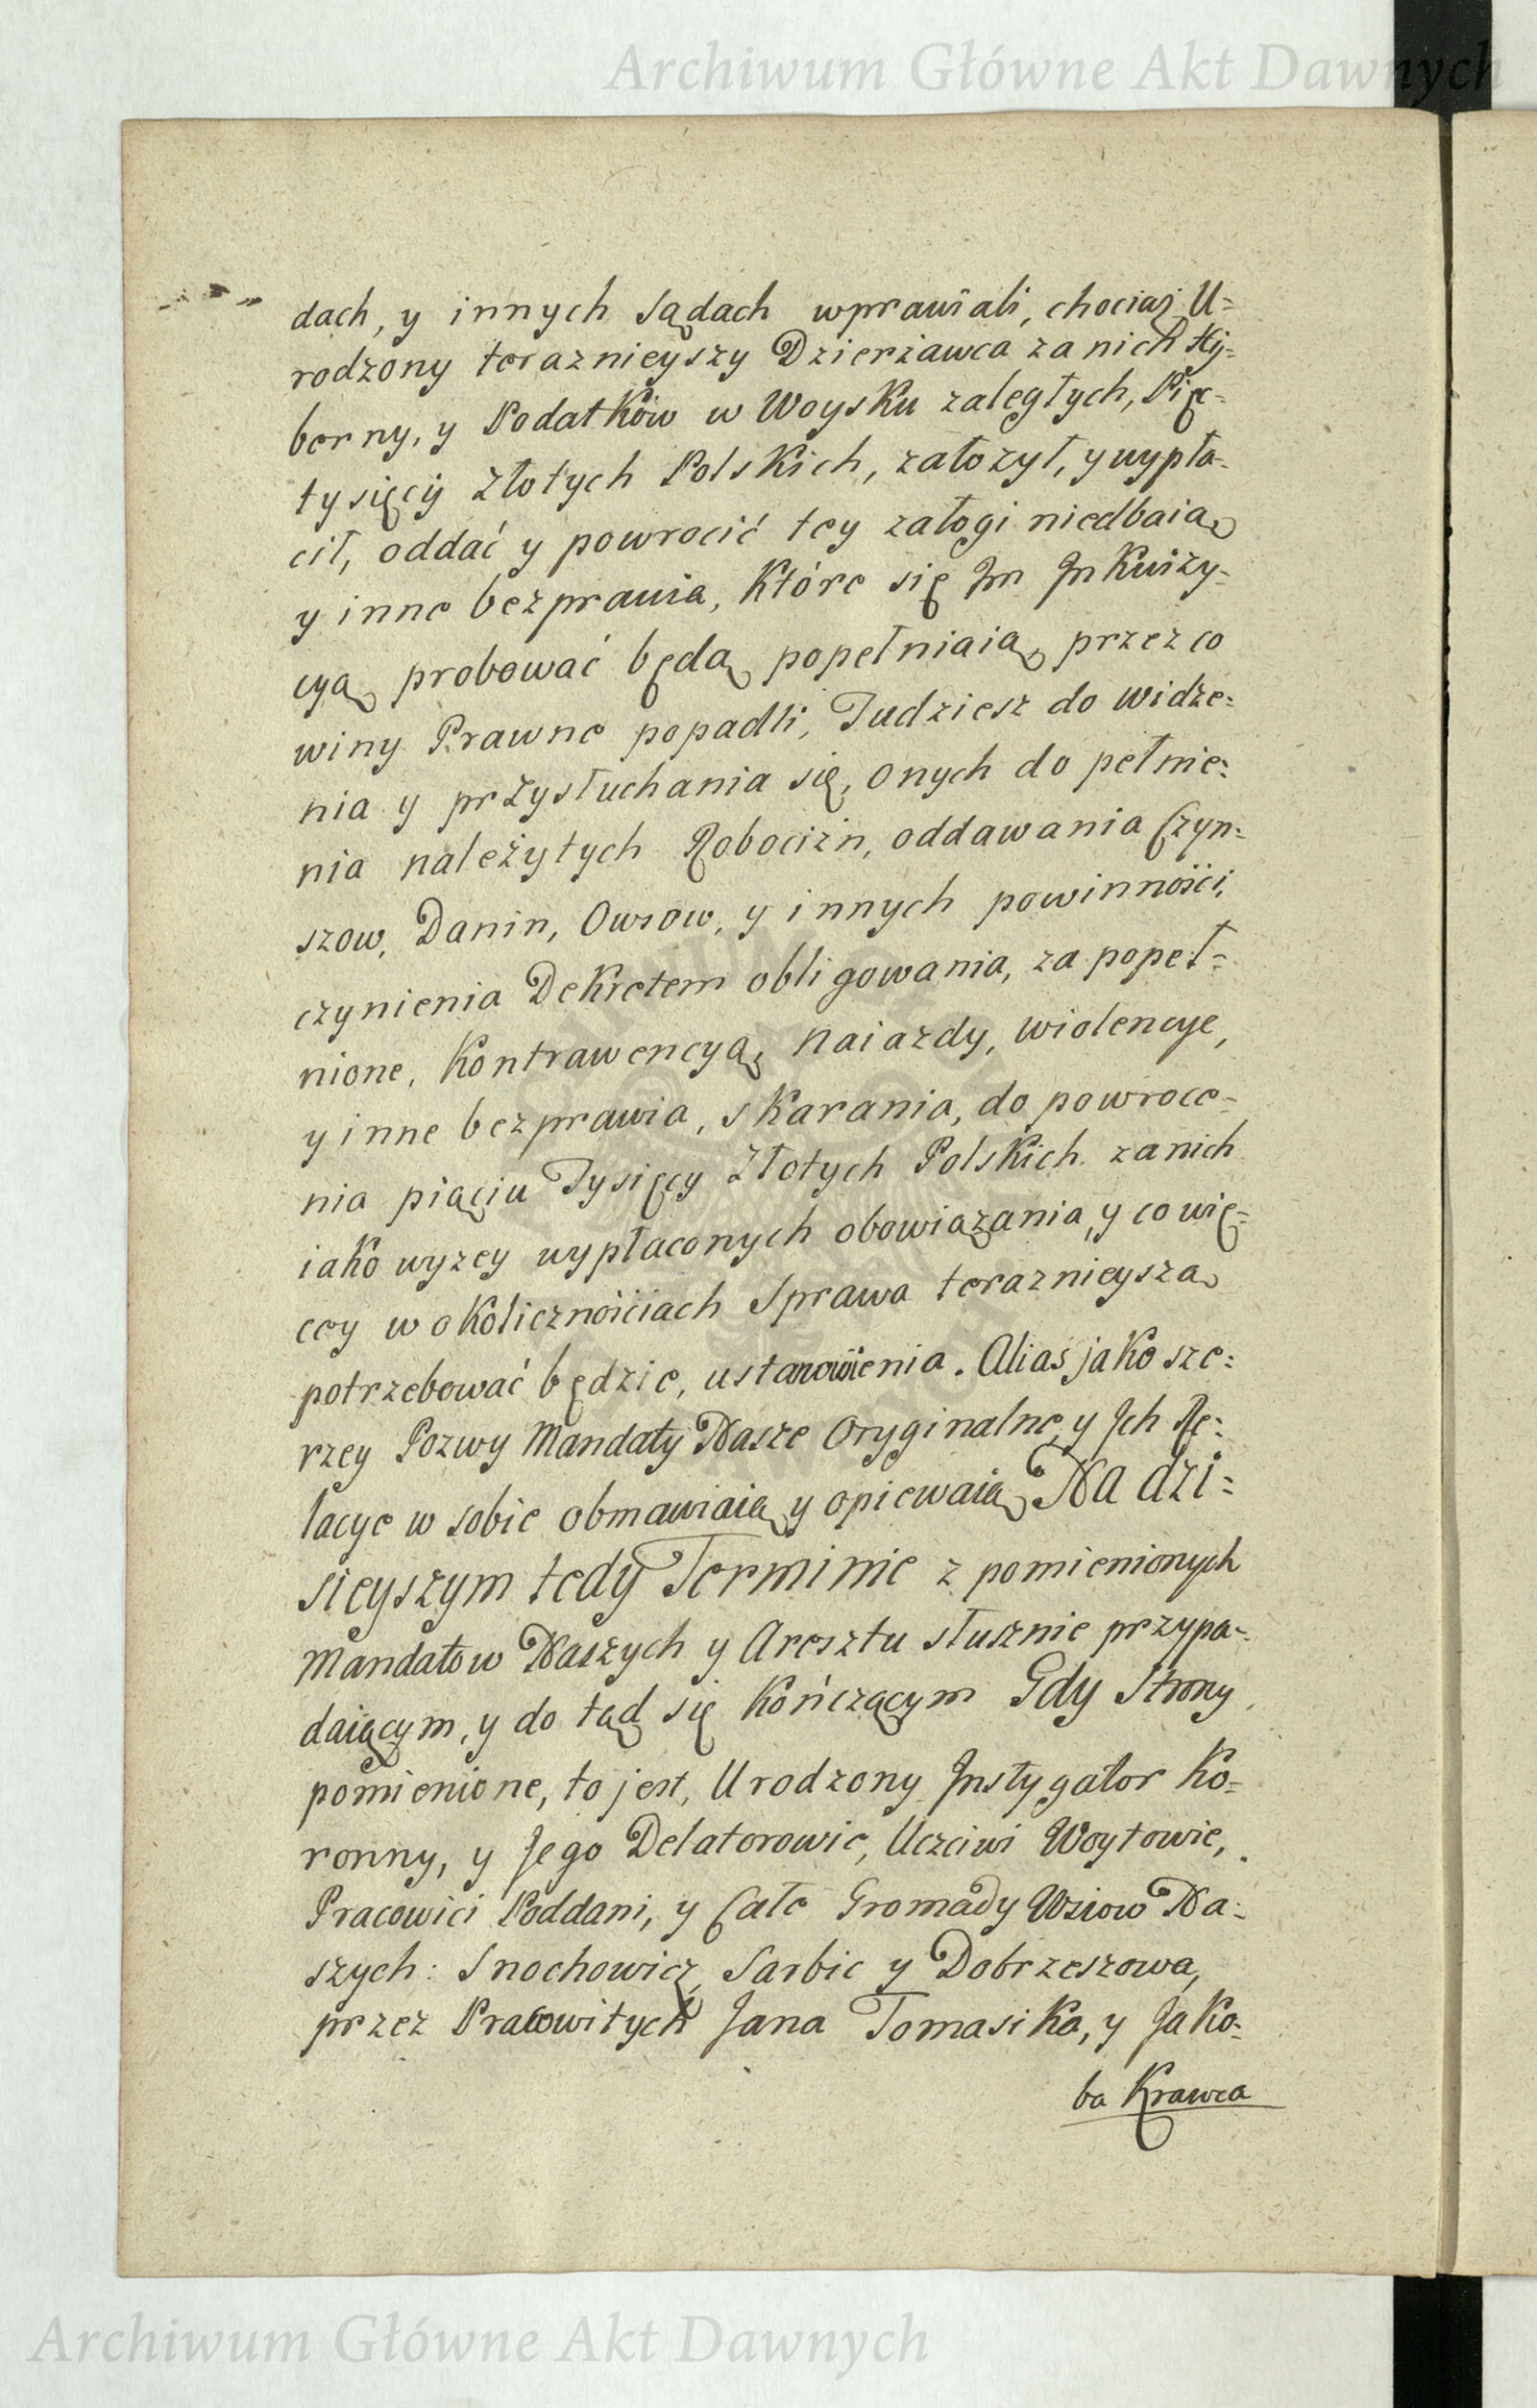 Archiwum Główne Akt Dawnych
dach, y innych sądach wprawiali, chociaż U=
rodzony teraznieyszy Dzierżawca za nich Hy=
berny, y Podatków w Woysku zaległych, Pięc=
tysięcy Złotych Polskich, założył, y wypła=
cił, oddać y powrocić tey załogi niedbaią
y inne bezprawia, które się Im Inkwizy=
cyą probować będą popełniaią przez co
winy Prawne popadli, Tudziesz do widze=
nia y przysłuchania się, onych do pełnie=
nia należytych Robocizn, oddawania Czyn=
szow, Danin, Owsow, y innych powinności,
czynienia Dekretem obligowania, za popeł=
nione, Kontrawencyą, naiazdy, wiolencye,
y inne bezprawia, skarania, do powroce=
nia piąciu Tysięcy Złotych Polskich za nich
iako wyzey wypłaconych obowiązania, y co wię=
cey w okolicznościach Sprawa teraznieysza
potrzebować będzie, ustanowienia. Alias jako sze=
rzey Pozwy Mandaty Nasze Oryginalne, y Ich Re=
lacye w sobie obmawiaią y opiewaią Na dzi=
sieyszym tedy Terminie z pomienionych
Mandatow Naszych y Aresztu słusznie przypa=
daiącym, y do tąd się kończącym Gdy Strony
pomienione, to jest, Urodzony Instygator Ko=
ronny, y Jego Delatorowie, Uczciwi Woytowie,
Pracowici Poddani, y Całe Gromady Wsiow Na=
szych: Snochowicz, Sarbic y Dobrzeszowa,
przez Pracowitych Jana Tomasika, y Jako=
ba Krawca
Archiwum Główne Akt Dawnych